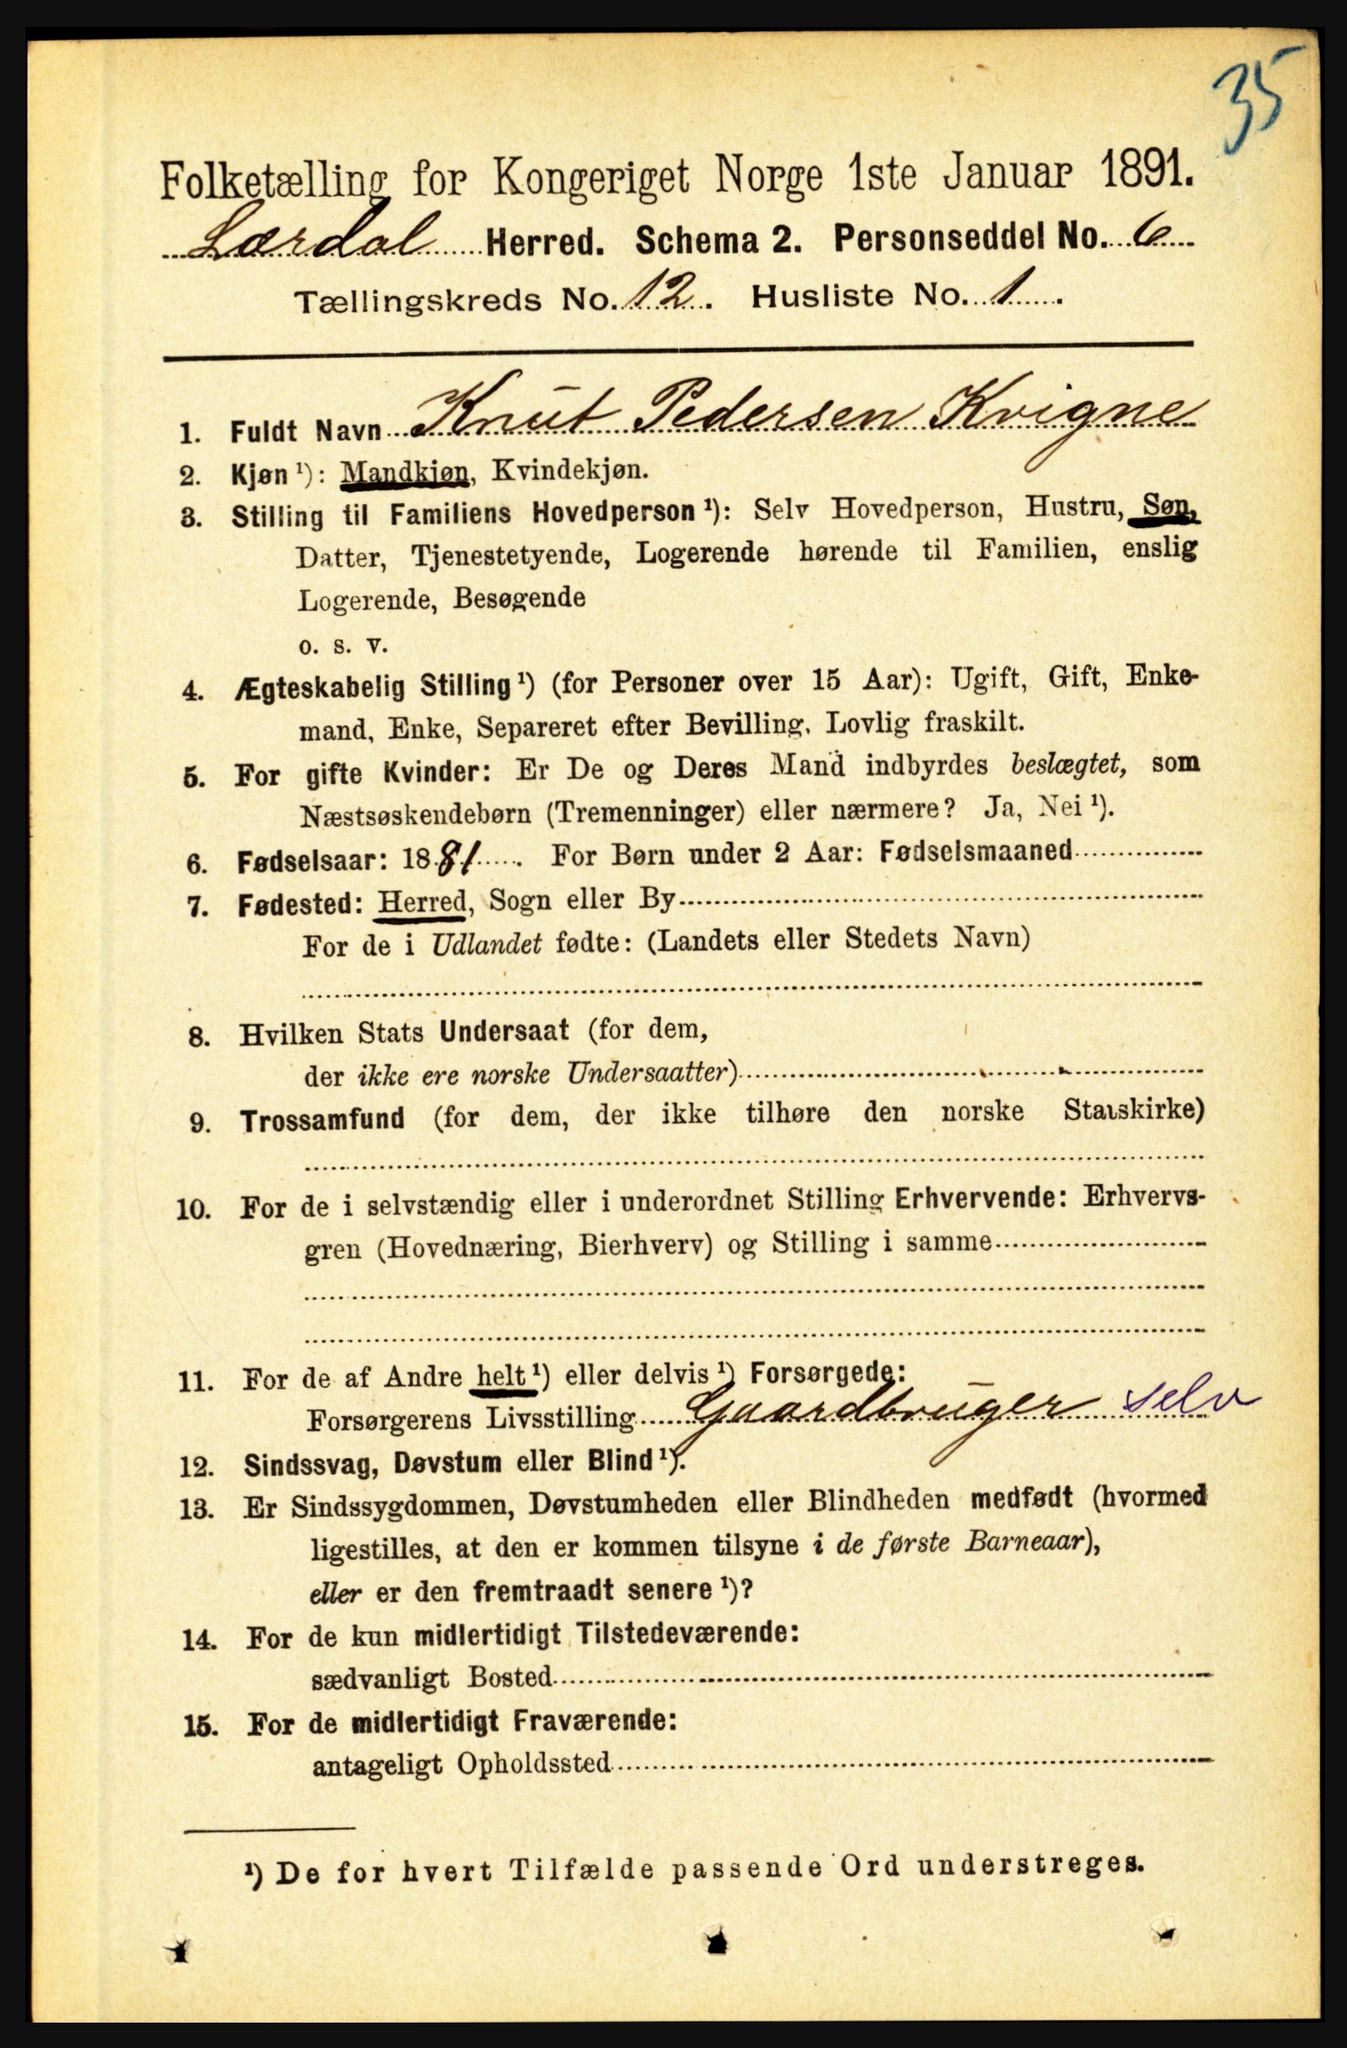 35
Folketælling for Kongeriget Norge 1ste Januar 1891.
Lærdal Herred. Schema 2. Personseddel No. 6
Tællingskreds No. 12. Husliste No. 1.
1. Fuldt Navn Knut Pedersen Kvigne
2. Kjøn ¹): Mandkjøn, Kvindekjøn.
3. Stilling til Familiens Hovedperson ¹): Selv Hovedperson, Hustru, Søn,
Datter, Tjenestetyende, Logerende hørende til Familien, enslig
Logerende, Besøgende
o. s. v.
4. Ægteskabelig Stilling ¹) (for Personer over 15 Aar): Ugift, Gift, Enke-
mand, Enke, Separeret efter Bevilling, Lovlig fraskilt.
5. For gifte Kvinder: Er De og Deres Mand indbyrdes beslægtet, som
Næstsøskendebørn (Tremenninger) eller nærmere? Ja, Nei ¹).
6. Fødselsaar: 1881. For Børn under 2 Aar: Fødselsmaaned
7. Fødested: Herred, Sogn eller By
For de i Udlandet fødte: (Landets eller Stedets Navn)
8. Hvilken Stats Undersaat (for dem,
der ikke ere norske Undersaatter)
9. Trossamfund (for dem, der ikke tilhøre den norske Statskirke)
10. For de i selvstændig eller i underordnet Stilling Erhvervende: Erhvervs-
gren (Hovednæring, Bierhverv) og Stilling i samme
11. For de af Andre helt ¹) eller delvis ¹) Forsørgede:
Forsørgerens Livsstilling Gaardbruger selv
12. Sindssvag, Døvstum eller Blind ¹).
13. Er Sindssygdommen, Døvstumheden eller Blindheden medfødt (hvormed
ligestilles, at den er kommen tilsyne i de første Barneaar),
eller er den fremtraadt senere ¹)?
14. For de kun midlertidigt Tilstedeværende:
sædvanligt Bosted
15. For de midlertidigt Fraværende:
antageligt Opholdssted
¹) De for hvert Tilfælde passende Ord understreges.